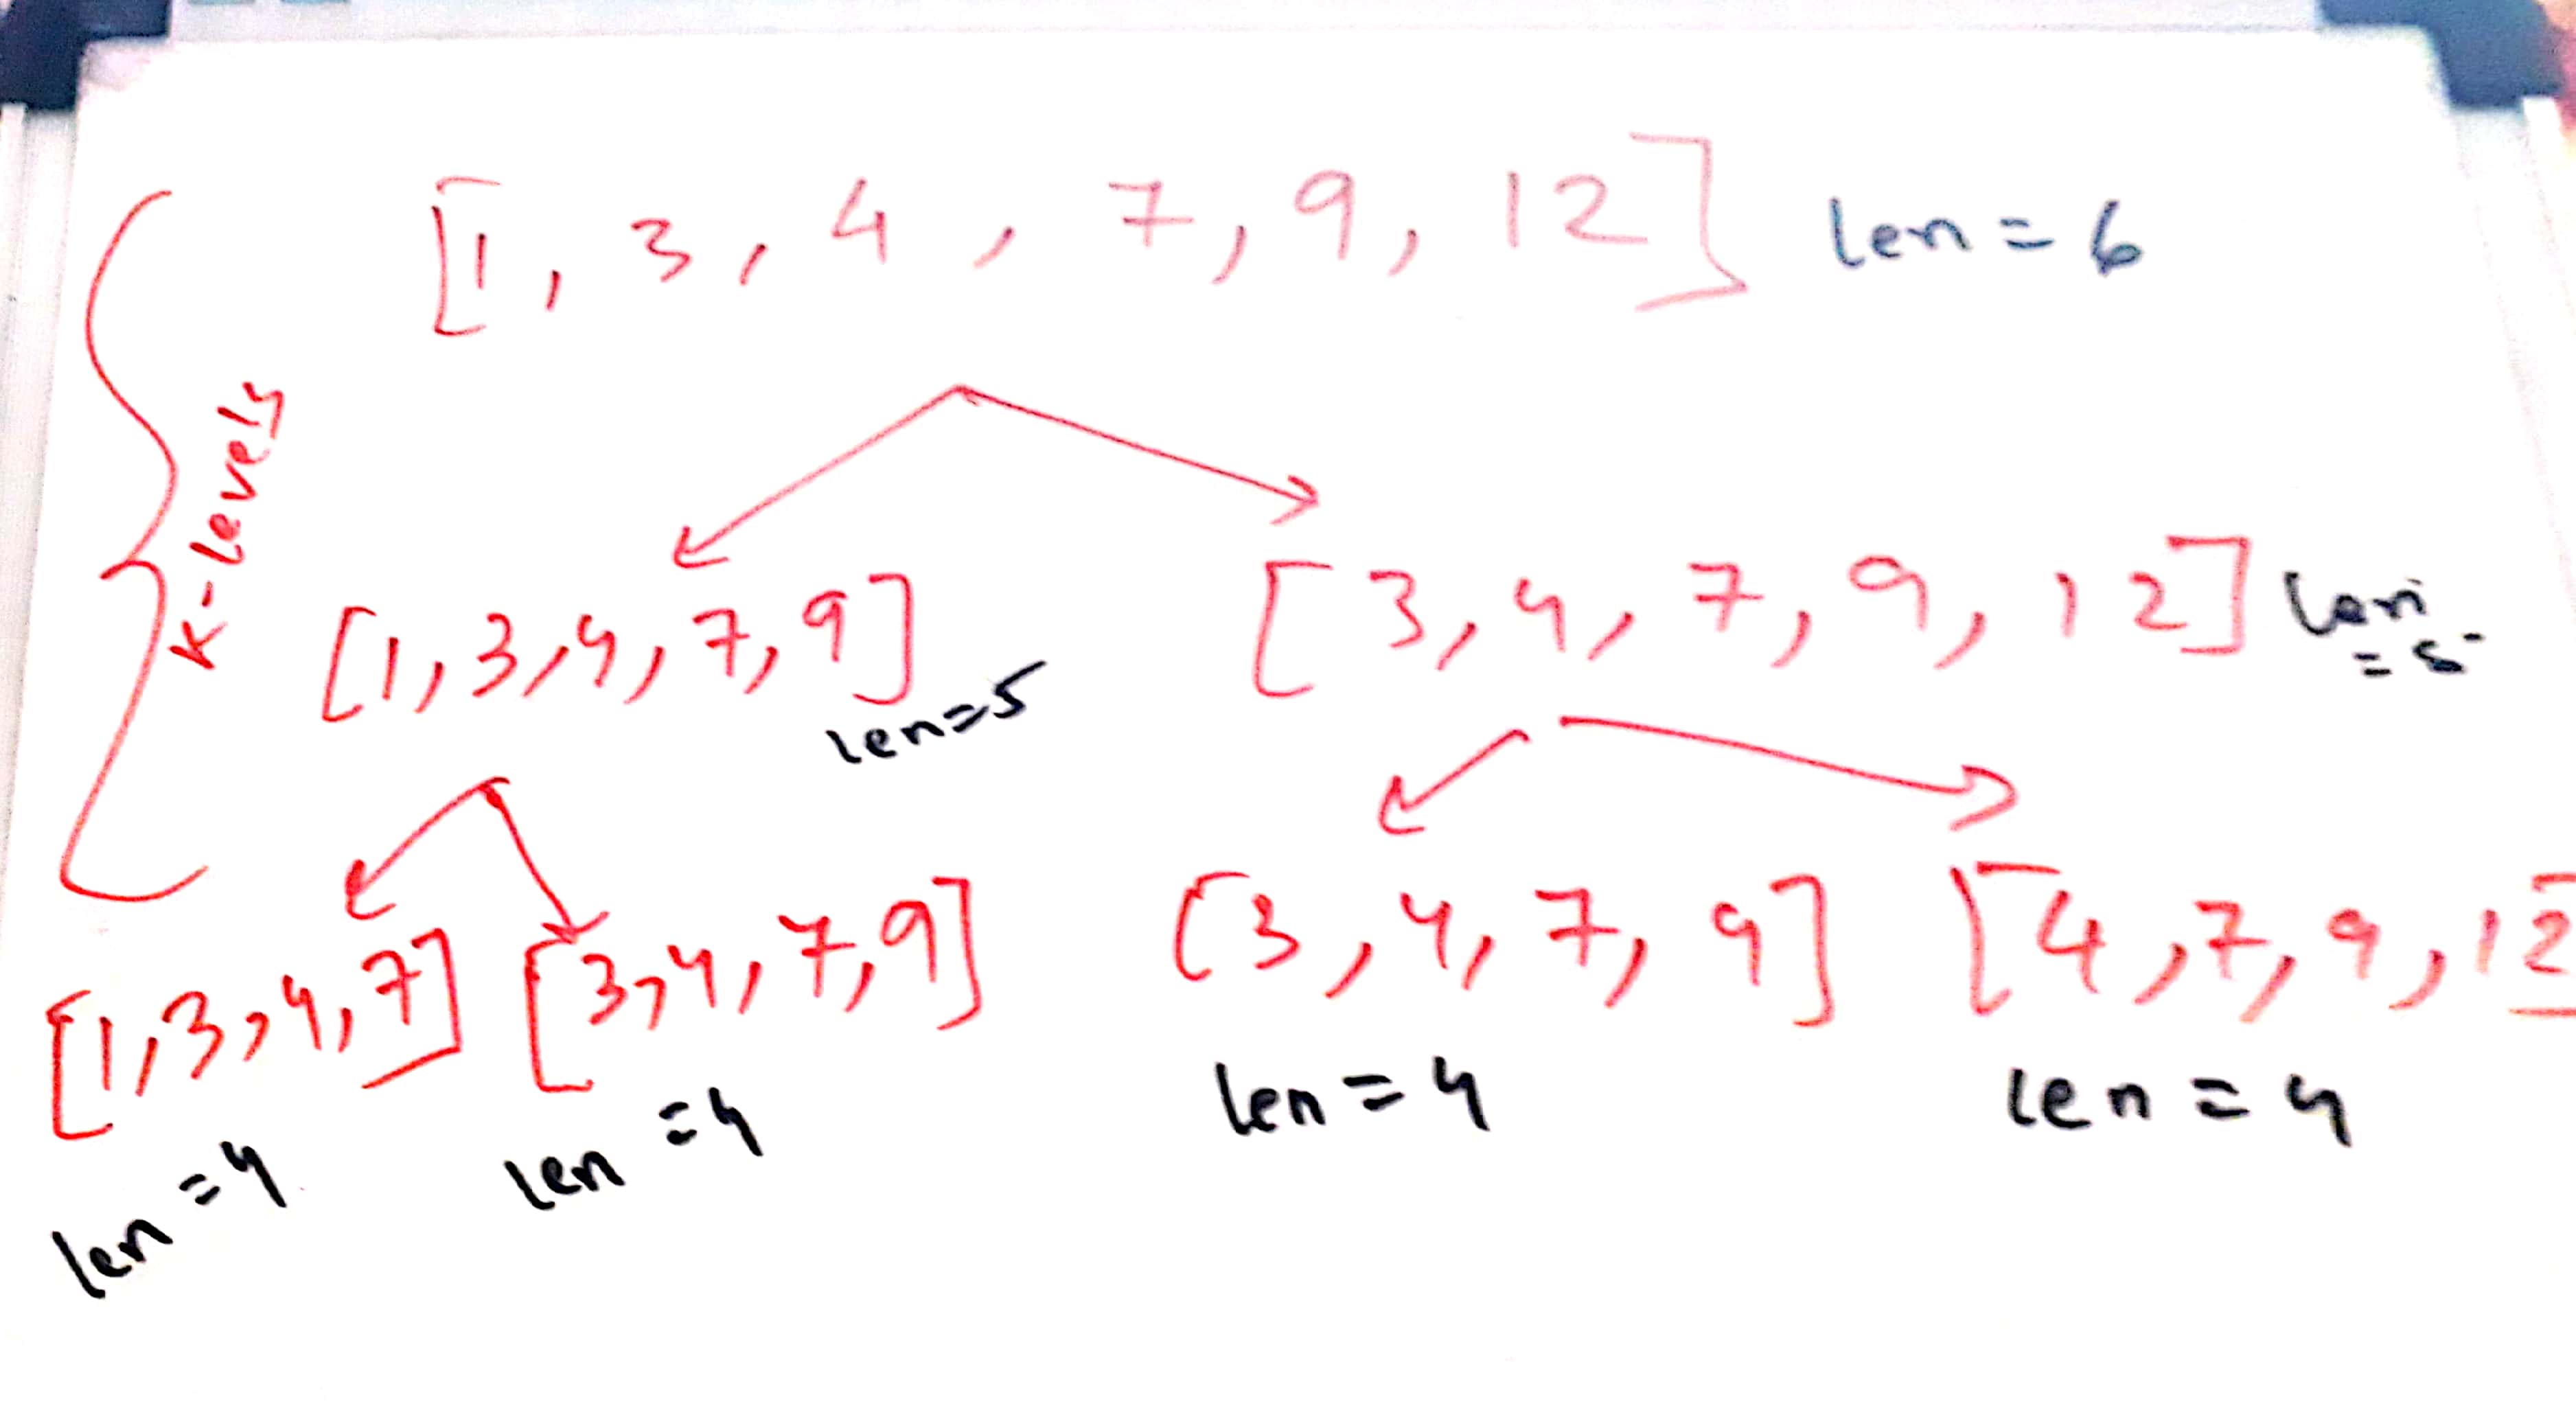 [1, 3, 4, 7, 9, 12] len = 6
K-levels
[1,3,4,7,9] len=5
[3,4,7,9,12] len = 5
[1,3,4,7] len = 4
[3,4,7,9] len = 4
[3,4,7,9] len = 4
[4,7,9,12 len = 4